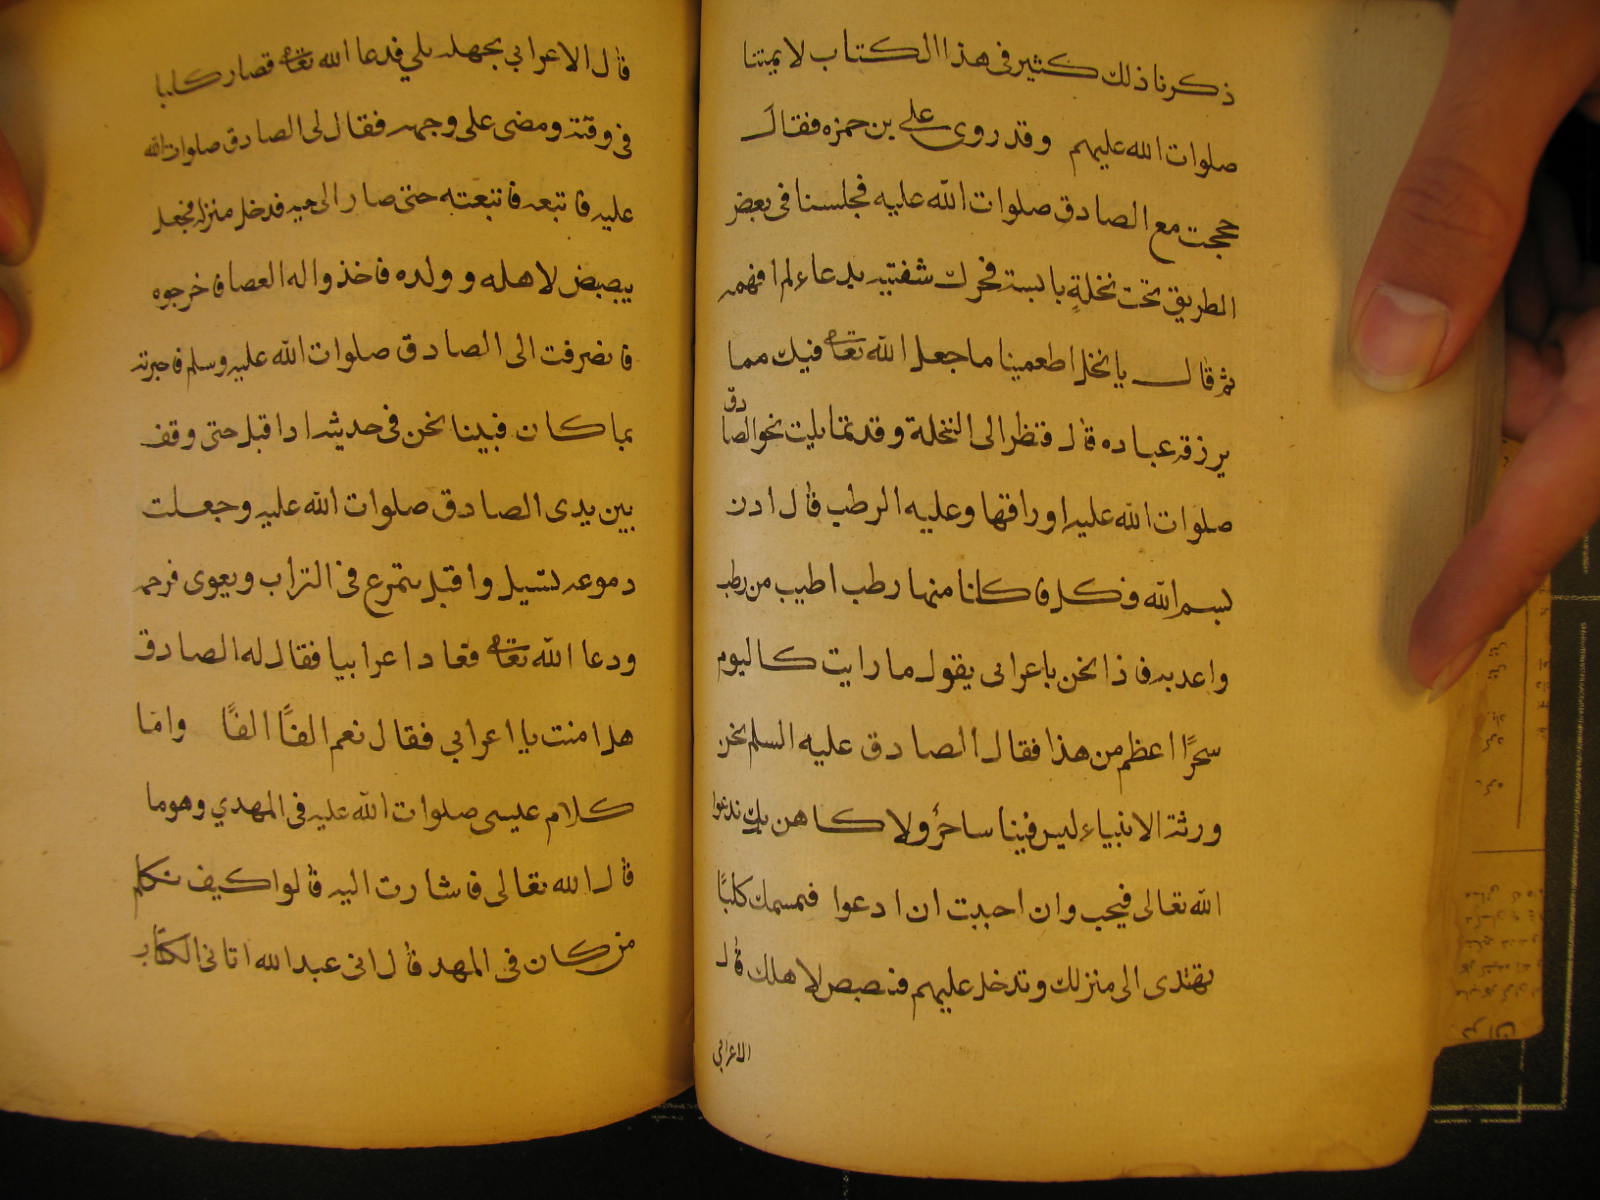 ذكرنا ذلك كثير في هذا الكتاب لايمتنا
صلوات الله عليهم وقد روى علي بن حمزه فقال
حججت مع الصادق صلوات الله عليه فجلسنا في بعض
الطريق تحت نخلة يابسة فحرك شفتيه بدعاء لم افهمه
ثم قال يا نخل اطعمينا ما جعل الله تعا فيك مما
يرزقه عباده قال فنظر الى النخلة وقد تمايلت نحو الصادق
صلوات الله عليه اوراقها وعليه الرطب قال ادن
بسم الله وكل فاكلنا منها رطب اطيب من رطب
واعذبه فاذا نحن باعرابي يقول ما رايت كاليوم
سحرًا اعظم من هذا فقال الصادق عليه السلم نحن
ورثة الانبياء ليس فينا ساحر ولا كاهن بل ندعوا
الله تعالى فيجب وان احببت ان ادعوا فتمسك كلبًا
تهتدى الى منزلك وتدخل عليهم فتبصبص لاهلك قال
الاعرابي
قال الاعرابي بجهله بلي فدعا الله تعا فصار كلبا
في وقته ومضى على وجهه فقال لي الصادق صلوات الله
عليه فاتبعه فاتبعته حتى صار الى حيه فدخل منزله فجعل
يبصبص لاهله وولده فاخذوا له العصا فاخرجوه
فانصرفت الى الصادق صلوات الله عليه وسلم فاخبرته
بما كان فبينا نحن في حديثه اذ اقبل حتى وقف
بين يدى الصادق صلوات الله عليه وجعلت
دموعه تسيل واقبل يتمرغ في التراب ويعوى فرحمه
ودعا الله تعا فعاد اعرابيا فقال له الصادق
هل امنت يا اعرابي فقال نعم الفًا الفًا واما
كلام عيسى صلوات الله عليه في المهدي وهو ما
قال الله تعالى فاشارت اليه قالوا كيف نكلم
من كان في المهد قال انى عبد الله اتانى الكتاب